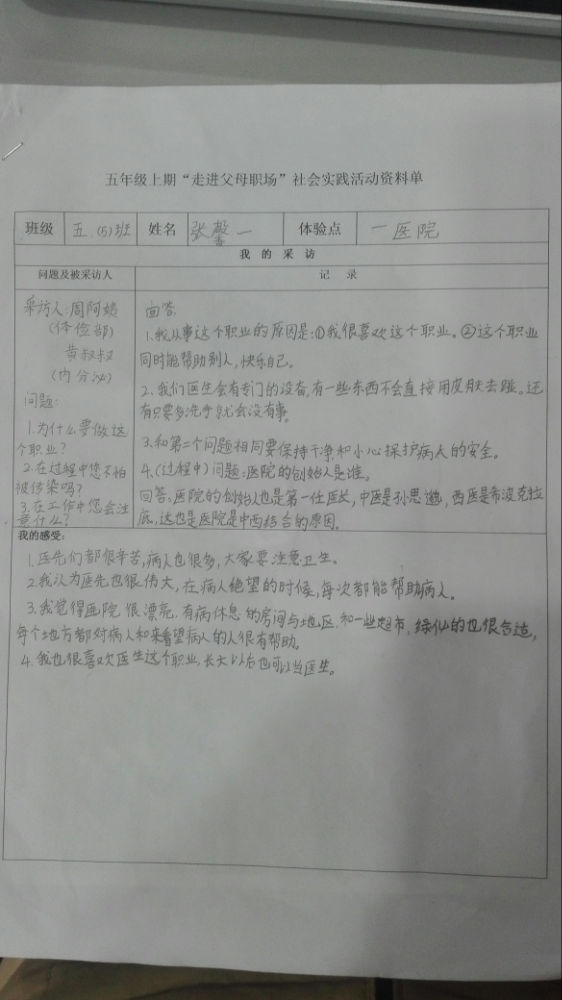 五年级上期“走进父母职场”社会实践活动资料单
班级 五.(5)班 姓名 张馨一 体验点 一医院
我 的 采 访
问题及被采访人 记 录
采访人:周阿姨
(体检部)
黄叔叔
(内分泌)
问题:
1.为什么要做这
个职业?
2.在过程中您不怕
被传染吗?
3.在工作中您会注
意什么?
回答:
1.我从事这个职业的原因是:①我很喜欢这个职业。②这个职业
同时能帮助别人,快乐自己。
2、我们医生会有专门的设备,有一些东西不会直接用皮肤去碰。还
有只要多洗手就会没有事。
3.和第二个问题相同要保持干净和小心保护病人的安全。
4.(过程中)问题:医院的创始人是谁。
回答:医院的创始人也是第一任医长,中医是孙思邈,西医是希波克拉
底,这也是医院是中西结合的原因。
我的感受:
1.医生们都很辛苦,病人也很多,大家要注意卫生。
2.我认为医生也很伟大,在病人绝望的时候,每次都能帮助病人。
3.我觉得医院很漂亮,有病休息的房间与地区,和一些超市,绿化的也很合适,
每个地方都对病人和来看望病人的人很有帮助。
4.我也很喜欢医生这个职业,长大以后也可以当医生。